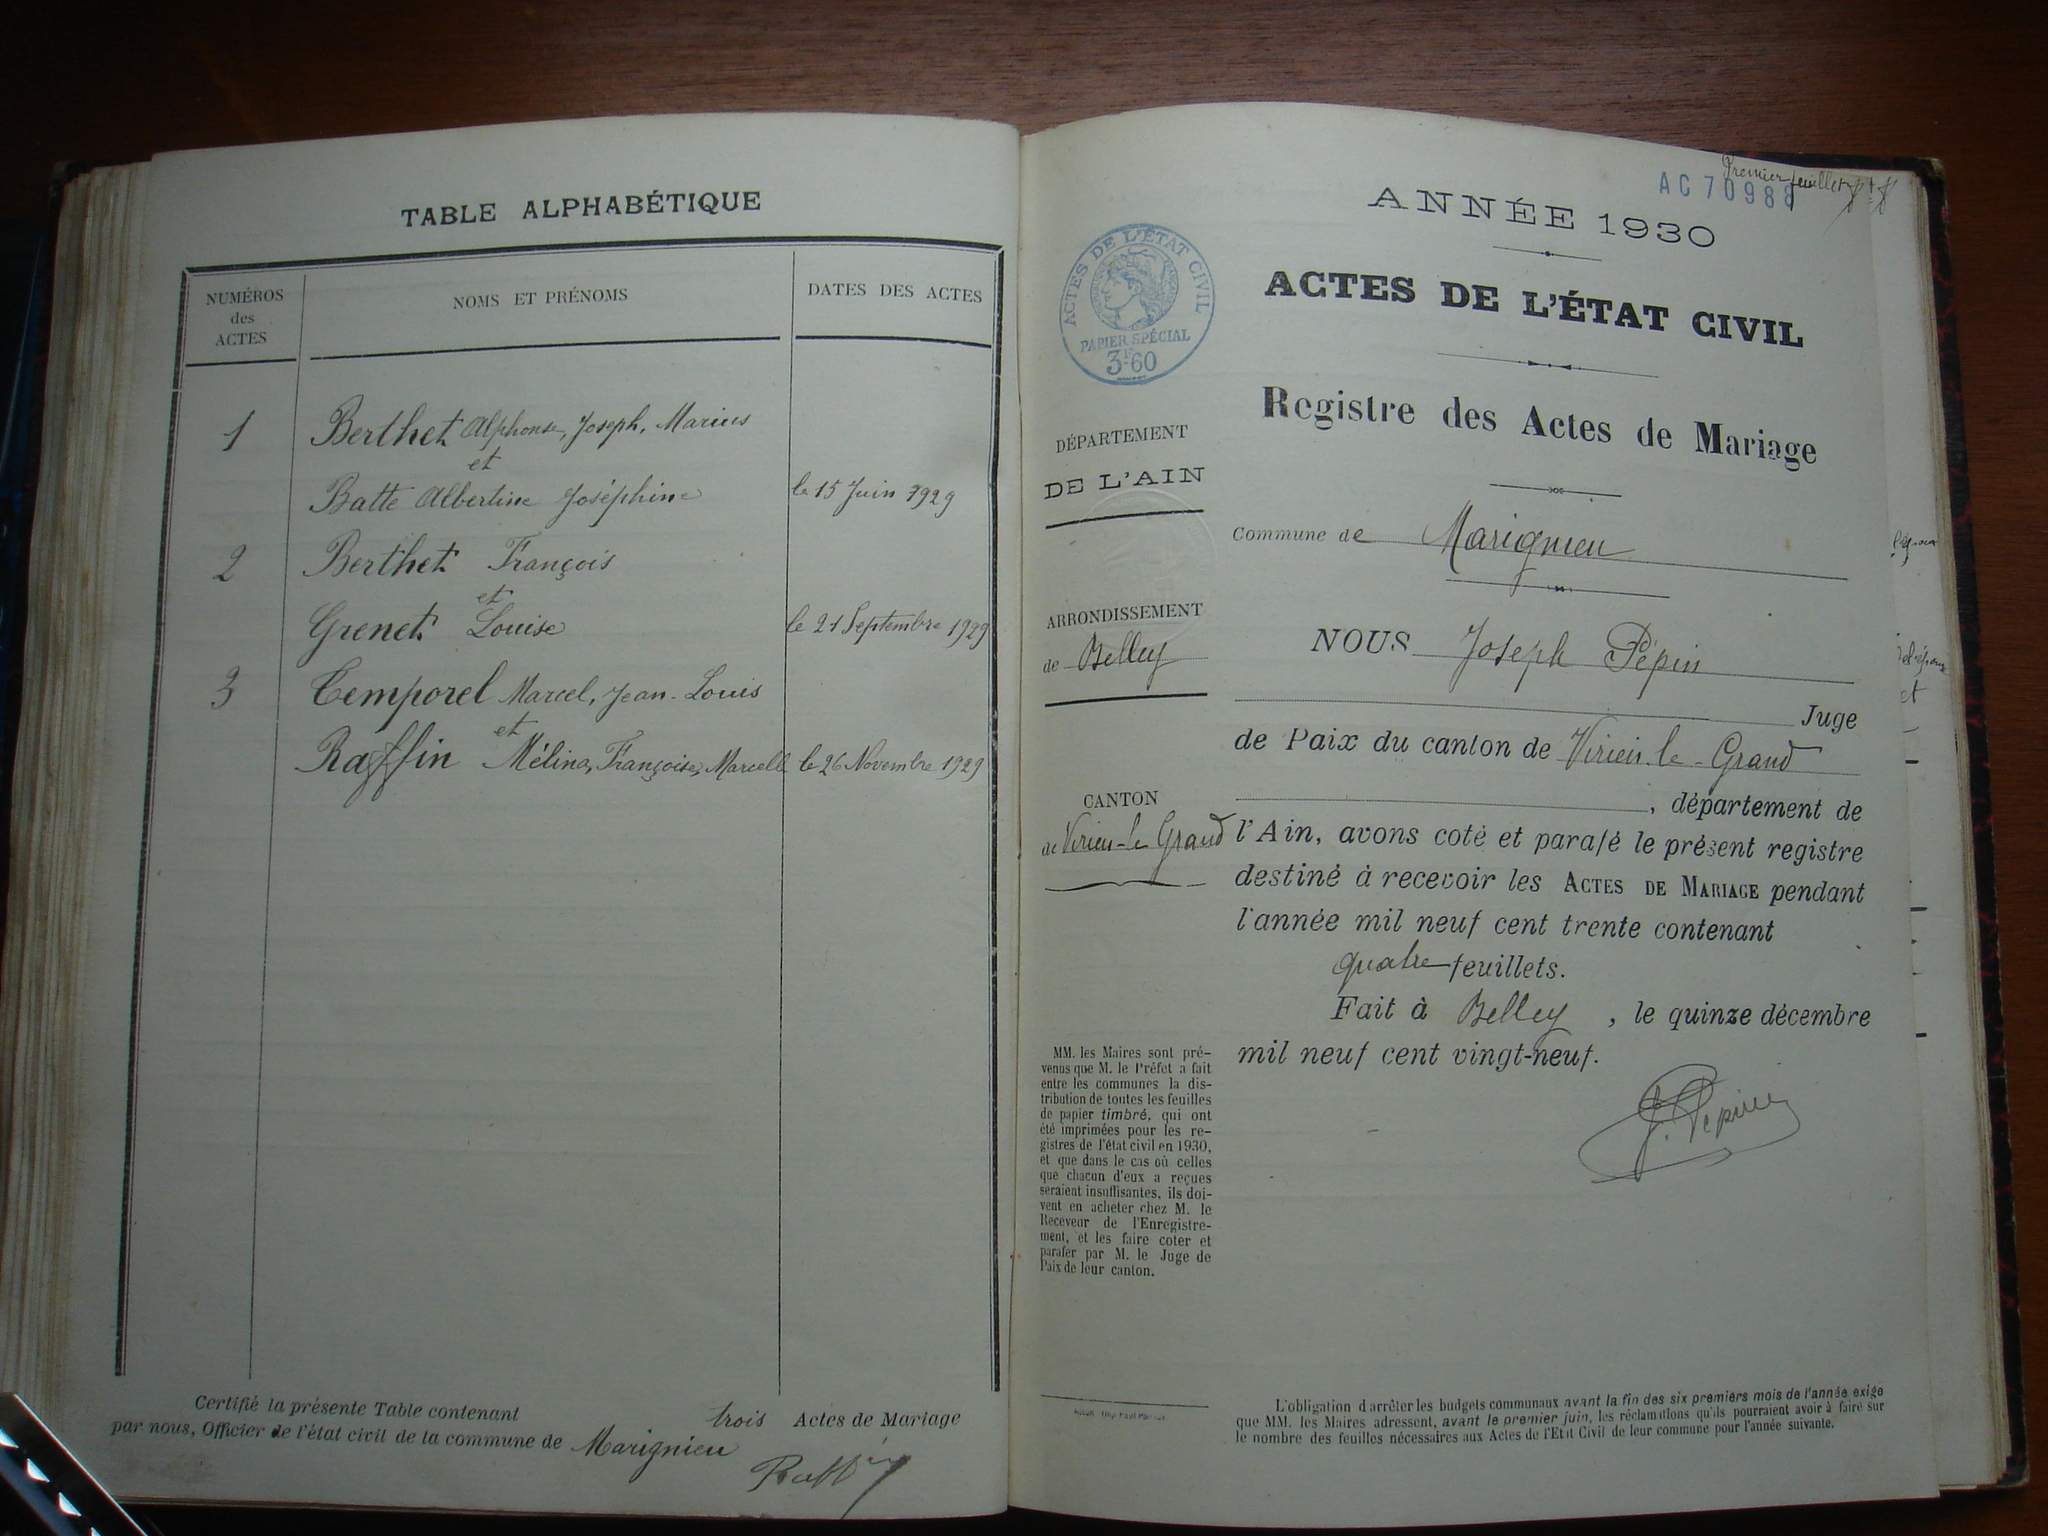 TABLE ALPHABÉTIQUE
NUMÉROS
des
ACTES
NOMS ET PRÉNOMS
DATES DES ACTES
1 Berthet Alphonse, Joseph, Marius
et
Batte Albertine Joséphine le 15 Juin 1929
2 Berthet François
et
Grenet Louise le 21 Septembre 1929
3 Temporel Marcel, Jean-Louis
et
Raffin Mélina, Françoise, Marcelle le 26 Novembre 1929
Certifié la présente Table contenant trois Actes de Mariage
par nous, Officier de l'état civil de la commune de Marignieu
Raffin
Premier feuillet
AC 70988
ANNÉE 1930
ACTES DE L'ÉTAT CIVIL
PAPIER SPÉCIAL
3F.60
ACTES DE L'ÉTAT CIVIL
Registre des Actes de Mariage
DÉPARTEMENT
DE L'AIN
Commune de Marignieu
ARRONDISSEMENT
de Belley
NOUS Joseph Pépin
Juge
de Paix du canton de Virieu-le-Grand
CANTON
de Virieu-le Grand
, département de
l'Ain, avons coté et parafé le présent registre
destiné à recevoir les ACTES DE MARIAGE pendant
l'année mil neuf cent trente contenant
quatre feuillets.
Fait à Belley, le quinze décembre
mil neuf cent vingt-neuf.
J. Pépin
MM. les Maires sont pré-
venus que M. le Préfet a fait
entre les communes la dis-
tribution de toutes les feuilles
de papier timbré, qui ont
été imprimées pour les re-
gistres de l'état civil en 1930,
et que dans le cas où celles
que chacun d'eux a reçues
seraient insuffisantes, ils doi-
vent en acheter chez M. le
Receveur de l'Enregistre-
ment, et les faire coter et
parafer par M. le Juge de
Paix de leur canton.
L'obligation d'arrêter les budgets communaux avant la fin des six premiers mois de l'année exige
que MM. les Maires adressent, avant le premier juin, les réclamations qu'ils pourraient avoir à faire sur
le nombre des feuilles nécessaires aux Actes de l'Etat Civil de leur commune pour l'année suivante.